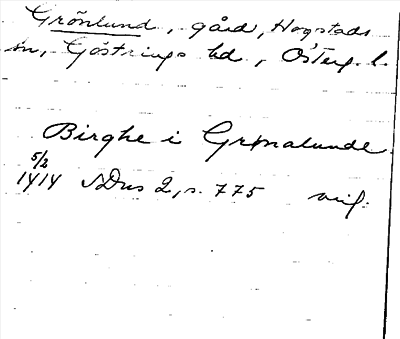 Grönlund, gård, Hogstads
sn, Göstrings hd, Österg. l.
Birghe i Grønalunde
5/2
1414 SDns 2, s. 775